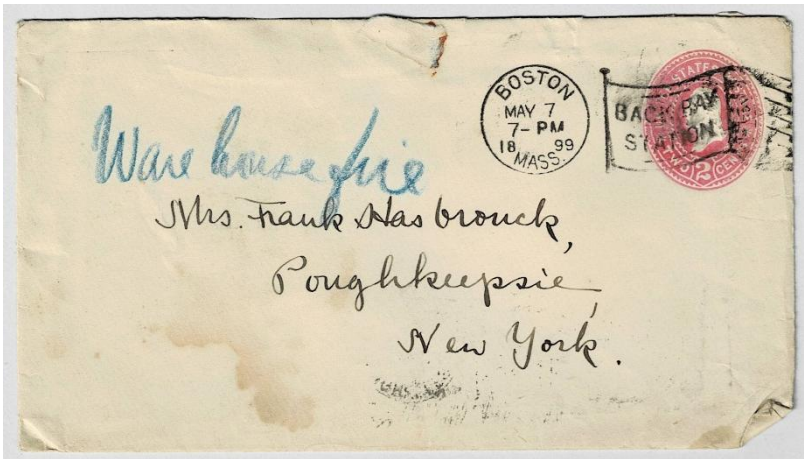 BOSTON
MAY 7
7-PM
18 99
MASS.
BACK BAY
STATION
STATES
TWO 2 CENTS
Ware house fire
Mrs. Frank Hasbrouck,
Poughkeepsie,
New York.